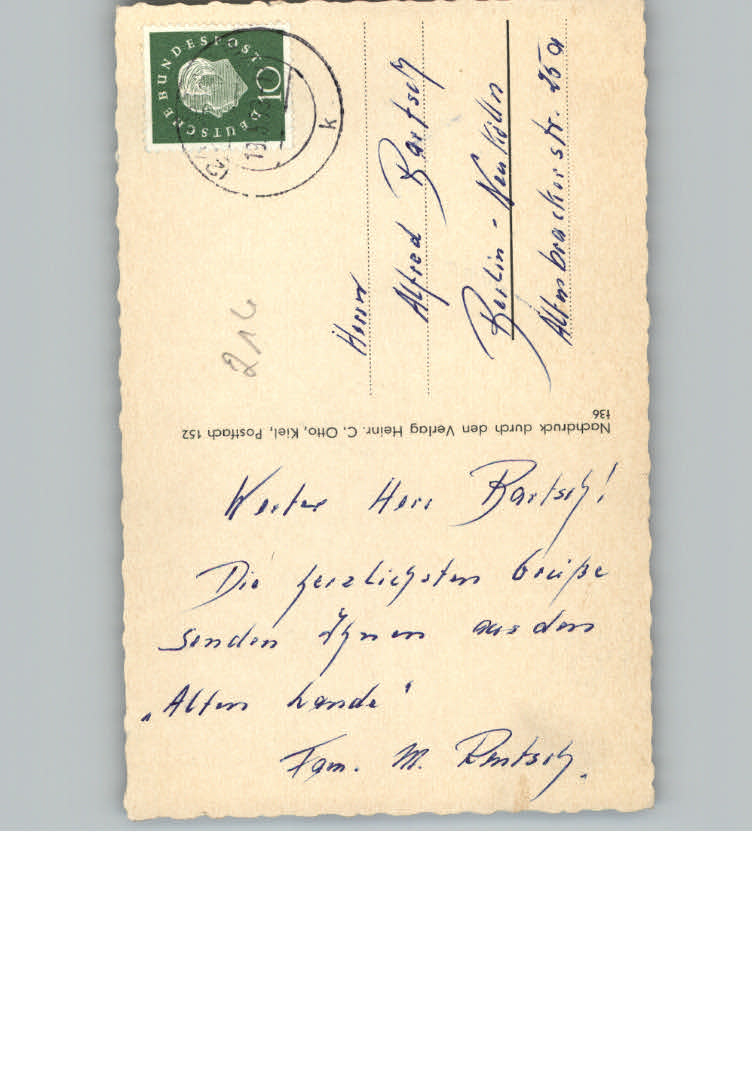 DEUTSCHE BUNDESPOST
10
k
216
Herrn
Alfred Bartsch
Berlin - Neukölln
Altenbrackerstr. 25a
Nachdruck durch den Verlag Heinr. C. Otto, Kiel, Postfach 152
Werter Herr Bartsch!
Die herzlichsten Grüße
senden Ihnen aus dem
„Alten Lande"
Fam. M. Rentsch.